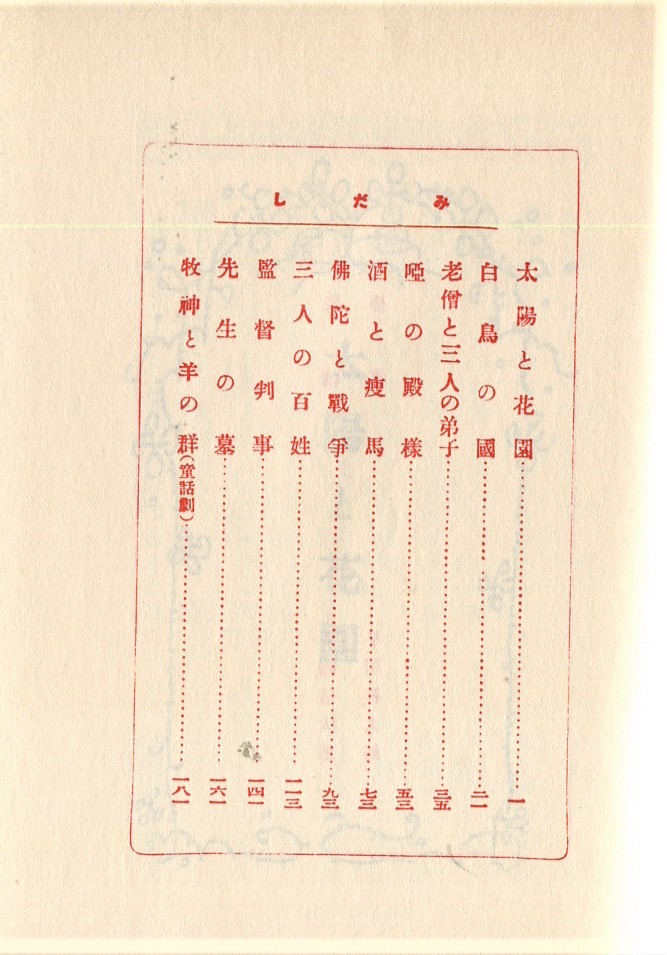 みだし
太陽と花園……一
白鳥の國……二一
老僧と三人の弟子……三五
啞の殿樣……五三
酒と瘦馬……七三
佛陀と戰爭……九三
三人の百姓……一一三
監督判事……一四一
先生の墓……一六一
牧神と羊の群(童話劇)……一八一